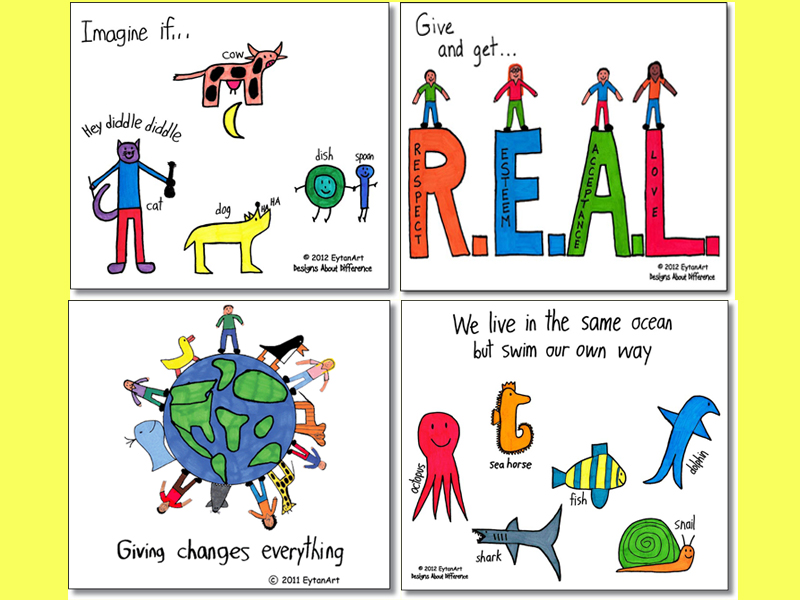 Imagine if...
cow
Hey diddle diddle
cat
dog
HA HA
dish
spoon
© 2012 EytanArt
Designs About Difference
Give
and get...
RESPECT
ESTEEM
ACCEPTANCE
LOVE
R.E.A.L.
© 2012 EytanArt
Designs About Difference
Giving changes everything
© 2011 EytanArt
We live in the same ocean
but swim our own way
octopus
sea horse
fish
dolphin
shark
snail
© 2012 EytanArt
Designs About Difference